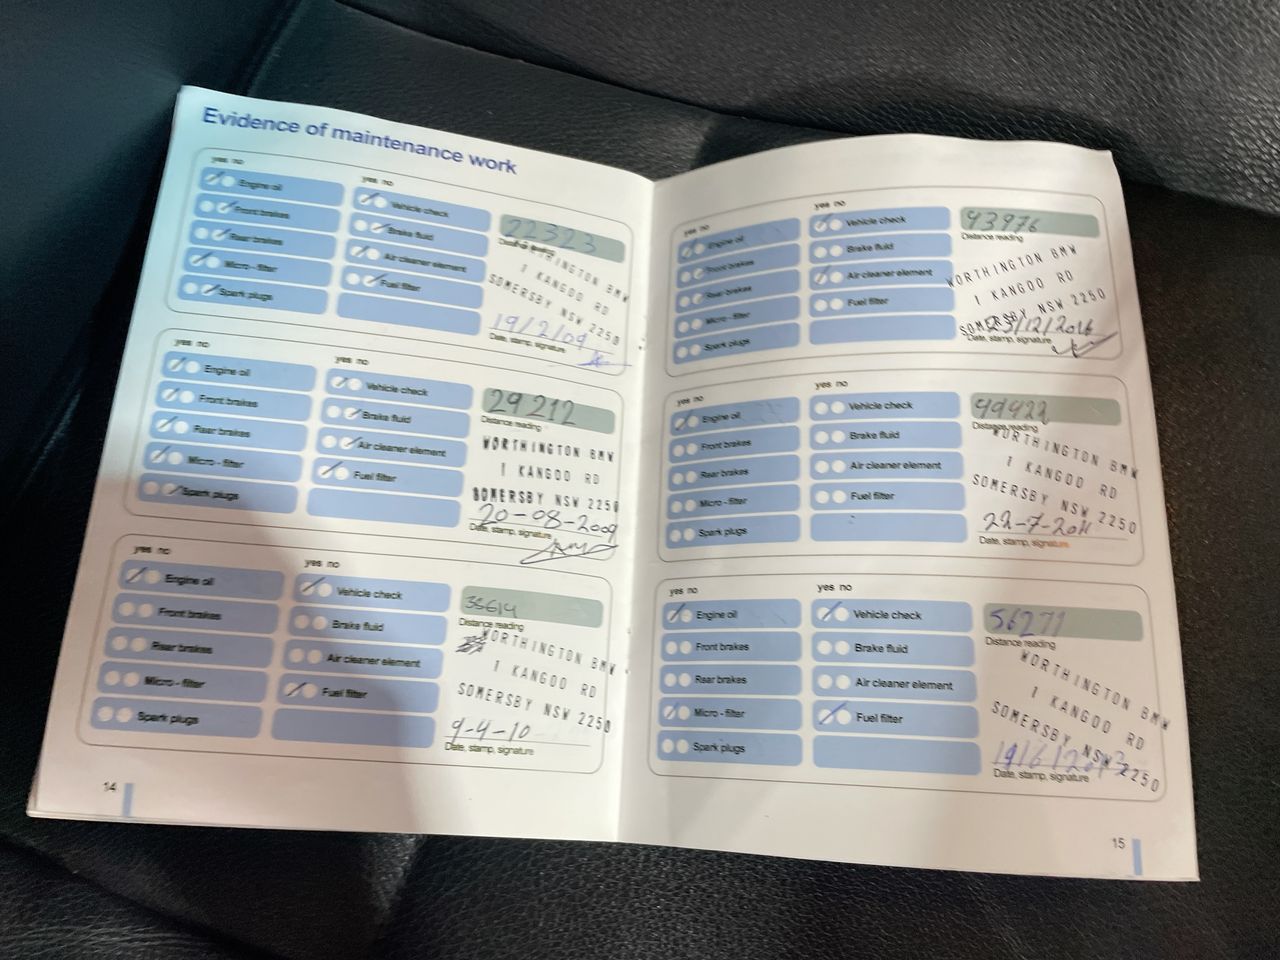 Evidence of maintenance work
yes no
yes no
Engine oil
Vehicle check
22323
Front brakes
Brake fluid
Distance reading
Rear brakes
Air cleaner element
WORTHINGTON BMW
Micro - filter
Fuel filter
1 KANGOO RD
Spark plugs
SOMERSBY NSW 2250
19/2/09
Date, stamp, signature
yes no
yes no
Engine oil
Vehicle check
29212
Front brakes
Brake fluid
Distance reading
Rear brakes
Air cleaner element
WORTHINGTON BMW
Micro - filter
Fuel filter
1 KANGOO RD
Spark plugs
SOMERSBY NSW 2250
20-08-2009
Date, stamp, signature
yes no
yes no
Engine oil
Vehicle check
Front brakes
Brake fluid
Distance reading
Rear brakes
Air cleaner element
WORTHINGTON BMW
Micro - filter
Fuel filter
1 KANGOO RD
Spark plugs
SOMERSBY NSW 2250
9-4-10
Date, stamp, signature
14
yes no
yes no
Engine oil
Vehicle check
43976
Front brakes
Brake fluid
Distance reading
Rear brakes
Air cleaner element
WORTHINGTON BMW
Micro - filter
Fuel filter
1 KANGOO RD
Spark plugs
SOMERSBY NSW 2250
Date, stamp, signature
yes no
yes no
Engine oil
Vehicle check
49422
Front brakes
Brake fluid
Distance reading
Rear brakes
Air cleaner element
WORTHINGTON BMW
Micro - filter
Fuel filter
1 KANGOO RD
Spark plugs
SOMERSBY NSW 2250
22-7-2011
Date, stamp, signature
yes no
yes no
Engine oil
Vehicle check
56271
Front brakes
Brake fluid
Distance reading
Rear brakes
Air cleaner element
WORTHINGTON BMW
Micro - filter
Fuel filter
1 KANGOO RD
Spark plugs
SOMERSBY NSW 2250
19/6/2013
Date, stamp, signature
15